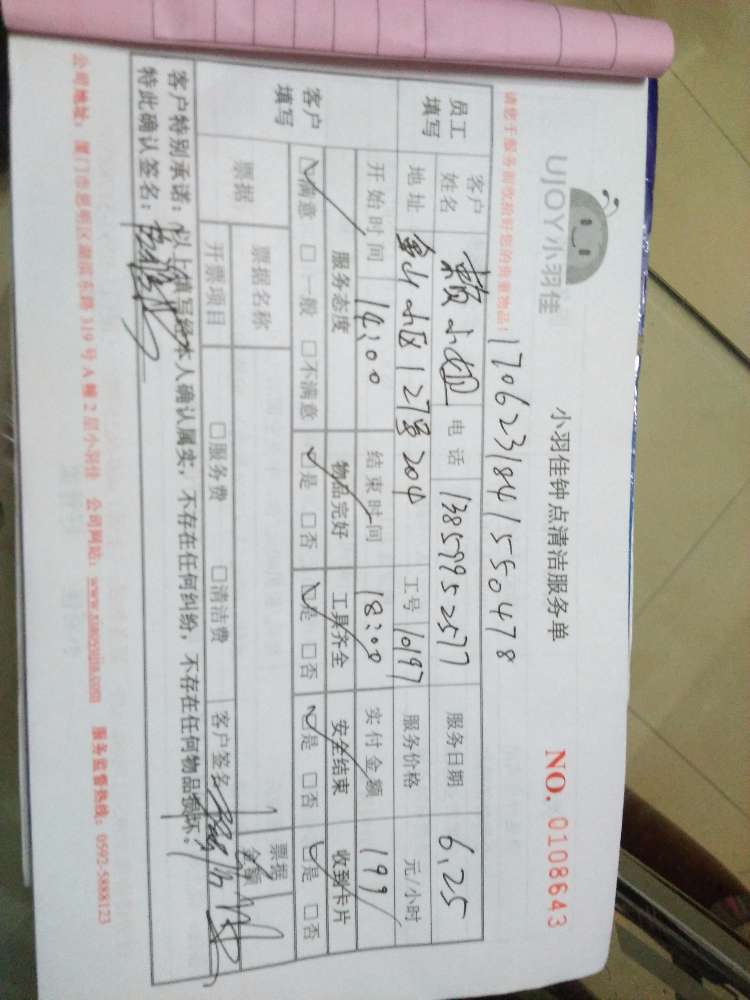 UJOY小羽佳
小羽佳钟点清洁服务单
NO. 0108643
请您于服务前收拾好您的贵重物品!
1706231841550478
员工填写
客户姓名 赖小姐 电话 13859952577 服务日期 6.25
地址 金山小区127号204 工号 10197 服务价格 元/小时
开始时间 14:00 结束时间 18:00 实付金额 199
客户填写
服务态度 物品完好 工具齐全 安全结束 收到卡片
☑满意 □一般 □不满意 ☑是 □否 ☑是 □否 ☑是 □否 ☑是 □否
票据 票据名称 票据金额
开票项目 □服务费 □清洁费 客户签名
客户特别承诺:以上填写经本人确认属实,不存在任何纠纷,不存在任何物品损坏!
特此确认签名:
公司地址:厦门市思明区湖滨东路319号A幢2层小羽佳 公司网站:www.xiaoyujia.com 服务监督热线:0592-5888123